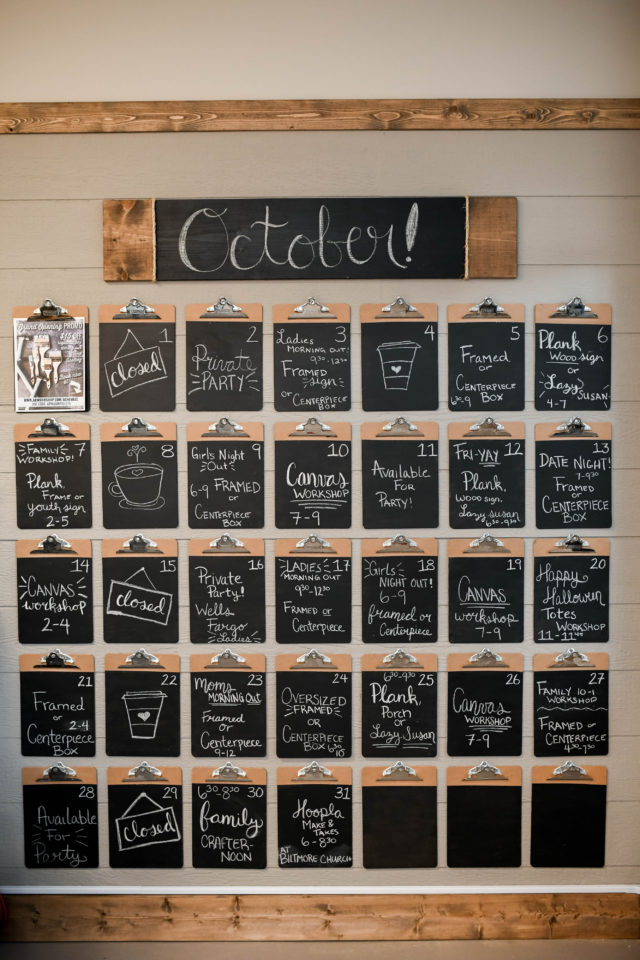 October!
Grand Opening PROMO
$15 OFF
1
closed
2
Private
PARTY
3
Ladies
MORNING OUT!
9:30-12:30
FRAMED
sign
or
CENTERPIECE
BOX
4
5
Framed
or
CENTERPIECE
6:30-9 BOX
6
Plank
WOOD sign
or
Lazy
SUSAN
4-7
7
FAMILY
WORKSHOP!
Plank
FRAME or
youth sign
2-5
8
9
Girls Night
Out
6-9 FRAMED
or
CENTERPIECE
BOX
10
Canvas
WORKSHOP
7-9
11
Available
FOR
PARTY!
12
FRI-YAY
Plank,
WOOD sign,
Lazy Susan
6:30-9:30
13
DATE NIGHT!
7-9:30
FRAMED
or
CENTERPIECE
BOX
14
CANVAS
workshop
2-4
15
closed
16
Private
Party!
Wells
Fargo
Ladies
17
LADIES
MORNING OUT
9:30-12:30
FRAMED or
Centerpiece
18
Girls
NIGHT OUT!
6-9
framed or
Centerpiece
19
CANVAS
workshop
7-9
20
Happy
Hallowen
Totes
WORKSHOP
11-11:45
21
Framed
or 2-4
Centerpiece
BOX
22
23
Moms
MORNING OUT
Framed
or
Centerpiece
9-12
24
OVERSIZED
FRAMED
OR
CENTERPIECE
BOX 6:30
10
25
6:30-9:30
Plank,
Porch
or
Lazy Susan
26
Canvas
WORKSHOP
7-9
27
FAMILY 10-1
WORKSHOP
FRAMED or
CENTERPIECE
4:30-7:30
28
Available
For
Party
29
Closed
30
6:30-8:30
family
CRAFTER-
NOON
31
Hoopla
MAKE &
TAKES
6-8:30
AT
BILTMORE CHURCH